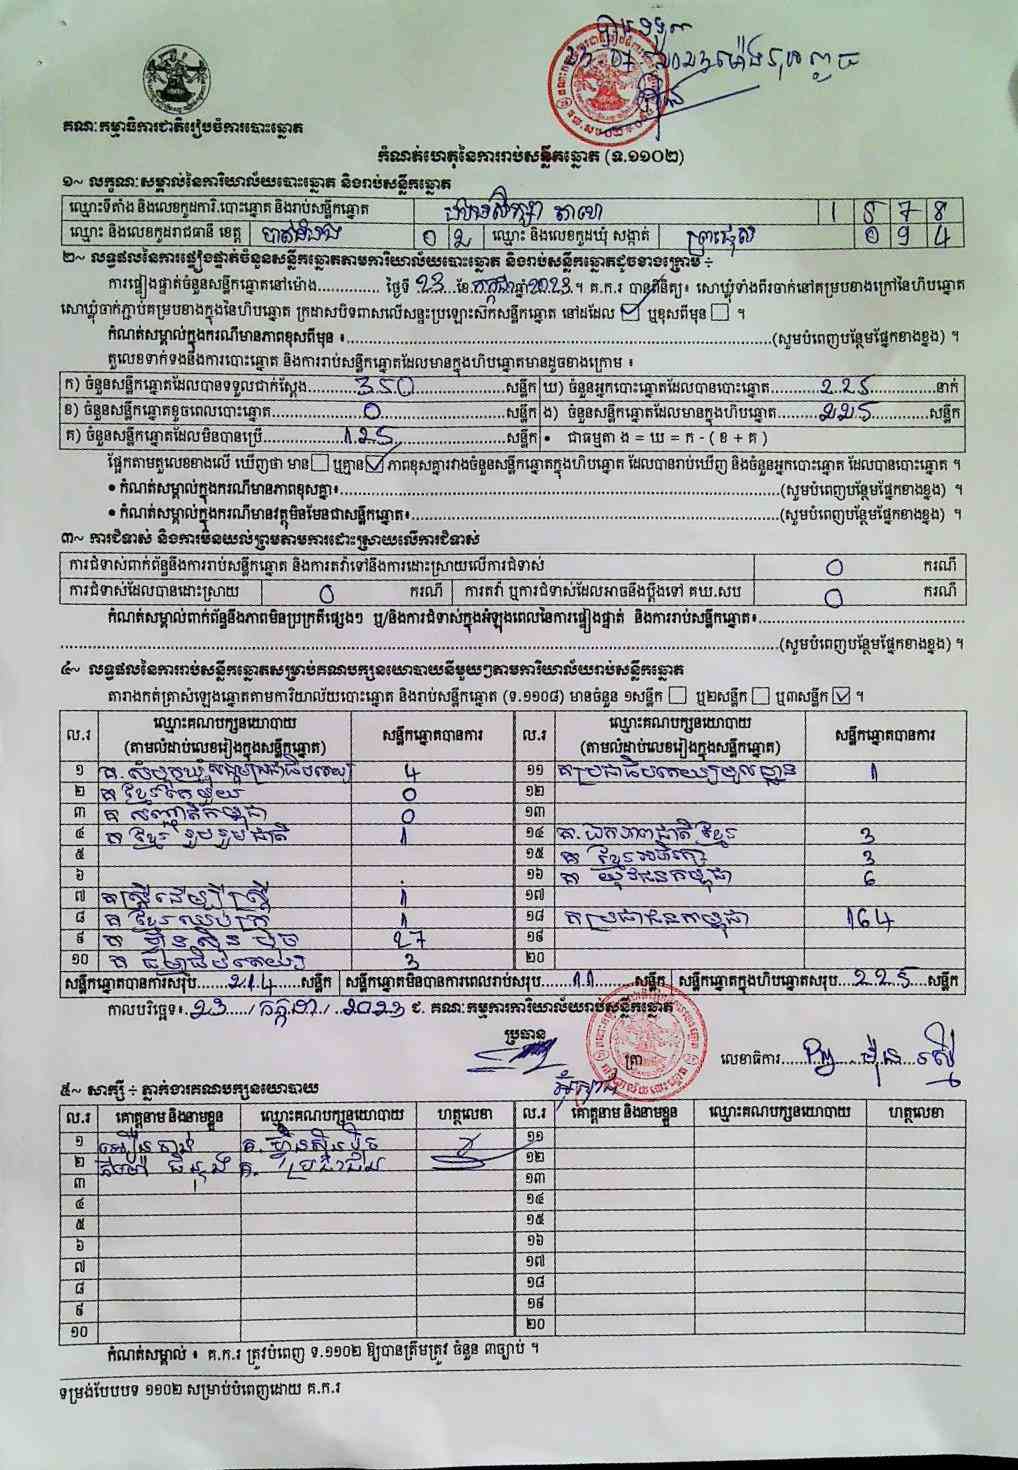 គណៈកម្មាធិការជាតិរៀបចំការបោះឆ្នោត
កំណត់ហេតុនៃការរាប់សន្លឹកឆ្នោត (ទ.១១០២)
១~ លក្ខណៈសម្គាល់នៃការិយាល័យបោះឆ្នោត និងរាប់សន្លឹកឆ្នោត
ឈ្មោះទីតាំង និងលេខកូដការិ.បោះឆ្នោត និងរាប់សន្លឹកឆ្នោត 1 5 7 8
ឈ្មោះ និងលេខកូដរាជធានី ខេត្ត បាត់ដំបង 0 2 ឈ្មោះ និងលេខកូដឃុំ សង្កាត់ 0 9 4
២~ លទ្ធផលនៃការផ្ទៀងផ្ទាត់ចំនួនសន្លឹកឆ្នោតតាមការិយាល័យបោះឆ្នោត និងរាប់សន្លឹកឆ្នោតដូចខាងក្រោម ÷
ការផ្ទៀងផ្ទាត់ចំនួនសន្លឹកឆ្នោតនៅម៉ោង............... ថ្ងៃទី 23 ខែ កក្កដា ឆ្នាំ 2023 ។ គ.ក.រ បានពិនិត្យ៖ សោឃ្លុំទាំងពីរចាក់នៅគម្របខាងក្រៅនៃហិបឆ្នោត
សោឃ្លុំចាក់ភ្ជាប់គម្របខាងក្នុងនៃហិបឆ្នោត ក្រដាសបិទពាសលើសន្ទះប្រឡោះស៊កសន្លឹកឆ្នោត នៅដដែល ☑ ឬខុសពីមុន ☐ ។
កំណត់សម្គាល់ក្នុងករណីមានភាពខុសពីមុន ៖...............(សូមបំពេញបន្ថែមផ្នែកខាងខ្នង) ។
តួលេខទាក់ទងនឹងការបោះឆ្នោត និងការរាប់សន្លឹកឆ្នោតដែលមានក្នុងហិបឆ្នោតមានដូចខាងក្រោម ៖
ក) ចំនួនសន្លឹកឆ្នោតដែលបានទទួលជាក់ស្តែង 350 សន្លឹក ឃ) ចំនួនអ្នកបោះឆ្នោតដែលបានបោះឆ្នោត 225 នាក់
ខ) ចំនួនសន្លឹកឆ្នោតខូចពេលបោះឆ្នោត 0 សន្លឹក ង) ចំនួនសន្លឹកឆ្នោតដែលមានក្នុងហិបឆ្នោត 225 សន្លឹក
គ) ចំនួនសន្លឹកឆ្នោតដែលមិនបានប្រើ 125 សន្លឹក • ជាធម្មតា ង = ឃ = ក - ( ខ + គ )
ផ្អែកតាមតួលេខខាងលើ ឃើញថា មាន ☐ ឬគ្មាន ☑ ភាពខុសគ្នារវាងចំនួនសន្លឹកឆ្នោតក្នុងហិបឆ្នោត ដែលបានរាប់ឃើញ និងចំនួនអ្នកបោះឆ្នោត ដែលបានបោះឆ្នោត ។
• កំណត់សម្គាល់ក្នុងករណីមានភាពខុសគ្នា៖...............(សូមបំពេញបន្ថែមផ្នែកខាងខ្នង) ។
• កំណត់សម្គាល់ក្នុងករណីមានវត្ថុមិនមែនជាសន្លឹកឆ្នោត៖...............(សូមបំពេញបន្ថែមផ្នែកខាងខ្នង) ។
៣~ ការជំទាស់ និងការមិនយល់ព្រមតាមការដោះស្រាយលើការជំទាស់
ការជំទាស់ពាក់ព័ន្ធនឹងការរាប់សន្លឹកឆ្នោត និងការតវ៉ាទៅនឹងការដោះស្រាយលើការជំទាស់ 0 ករណី
ការជំទាស់ដែលបានដោះស្រាយ 0 ករណី ការតវ៉ា ឬការជំទាស់ដែលអាចនឹងប្តឹងទៅ គឃ.សប 0 ករណី
កំណត់សម្គាល់ពាក់ព័ន្ធនឹងភាពមិនប្រក្រតីផ្សេងៗ ឬ/និងការជំទាស់ក្នុងអំឡុងពេលនៃការផ្ទៀងផ្ទាត់ និងការរាប់សន្លឹកឆ្នោត៖...............
...............(សូមបំពេញបន្ថែមផ្នែកខាងខ្នង) ។
៤~ លទ្ធផលនៃការរាប់សន្លឹកឆ្នោតសម្រាប់គណបក្សនយោបាយនីមួយៗតាមការិយាល័យរាប់សន្លឹកឆ្នោត
តារាងកត់ត្រាសំឡេងឆ្នោតតាមការិយាល័យបោះឆ្នោត និងរាប់សន្លឹកឆ្នោត (ទ.១១០៨) មានចំនួន ១សន្លឹក ☐ ឬ២សន្លឹក ☐ ឬ៣សន្លឹក ☑ ។
ល.រ ឈ្មោះគណបក្សនយោបាយ (តាមលំដាប់លេខរៀងក្នុងសន្លឹកឆ្នោត) សន្លឹកឆ្នោតបានការ ល.រ ឈ្មោះគណបក្សនយោបាយ (តាមលំដាប់លេខរៀងក្នុងសន្លឹកឆ្នោត) សន្លឹកឆ្នោតបានការ
១ គ.សំបុកឃ្មុំសង្គមប្រជាធិបតេយ្យ 4 ១១ គ ប្រជាធិបតេយ្យមូលដ្ឋាន 1
២ គ ខ្មែរតែមួយ 0 ១២
៣ គ សញ្ជាតិកម្ពុជា 0 ១៣
៤ គ ខ្មែររួបរួមជាតិ 1 ១៤ គ.ឯកភាពជាតិខ្មែរ 3
៥ ១៥ គ ខ្មែរអភិរក្ស 3
៦ ១៦ គ យុវជនកម្ពុជា 6
៧ គ ស្ត្រីដើម្បីស្ត្រី 1 ១៧
៨ គ ខ្មែរឈប់ក្រ 1 ១៨ គ ប្រជាជនកម្ពុជា 164
៩ គ ហ្វ៊ុនស៊ិនប៉ិច 27 ១៩
១០ គ ធម្មាធិបតេយ្យ 3 ២០
សន្លឹកឆ្នោតបានការសរុប 214 សន្លឹក សន្លឹកឆ្នោតមិនបានការពេលរាប់សរុប 11 សន្លឹក សន្លឹកឆ្នោតក្នុងហិបឆ្នោតសរុប 225 សន្លឹក
កាលបរិច្ឆេទ៖ 23 / កក្កដា / 2023 ជ. គណៈកម្មការការិយាល័យរាប់សន្លឹកឆ្នោត
ប្រធាន ត្រា លេខាធិការ
៥~ សាក្សី ÷ ភ្នាក់ងារគណបក្សនយោបាយ
ល.រ គោត្តនាម និងនាមខ្លួន ឈ្មោះគណបក្សនយោបាយ ហត្ថលេខា ល.រ គោត្តនាម និងនាមខ្លួន ឈ្មោះគណបក្សនយោបាយ ហត្ថលេខា
១ គ. ហ្វ៊ុនស៊ិនប៉ិច ១១
២ ១២
៣ ១៣
៤ ១៤
៥ ១៥
៦ ១៦
៧ ១៧
៨ ១៨
៩ ១៩
១០ ២០
កំណត់សម្គាល់ ៖ គ.ក.រ ត្រូវបំពេញ ទ.១១០២ ឱ្យបានត្រឹមត្រូវ ចំនួន ៣ច្បាប់ ។
ទម្រង់បែបបទ ១១០២ សម្រាប់បំពេញដោយ គ.ក.រ